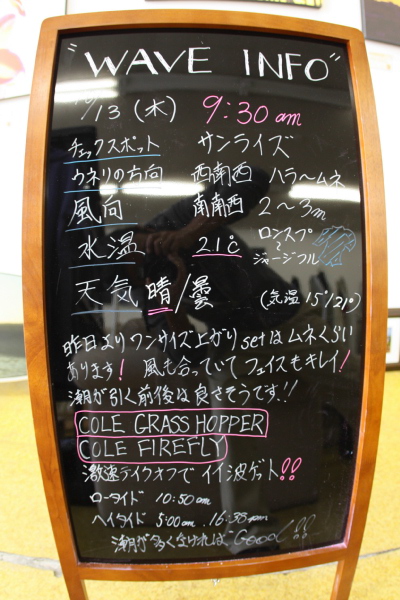 "WAVE INFO"
/13 (木) 9:30 am
チェックスポット サンライズ
ウネリの方向 西南西 ハラ〜ムネ
風向 南南西 2〜3m
水温 21℃ ロンスプ〜ジャージフル
天気 晴/曇 (気温15°/21°)
昨日よりワンサイズ上がり setはムネくらい
あります! 風も合っていてフェイスもキレイ!
潮が引く前後は良さそうです!!
COLE GRASS HOPPER
COLE FIREFLY
激速テイクオフでイイ波ゲット!!
ロータイド 10:50am
ハイタイド 5:00am . 16:38pm
潮が多くなければ "Good"!!